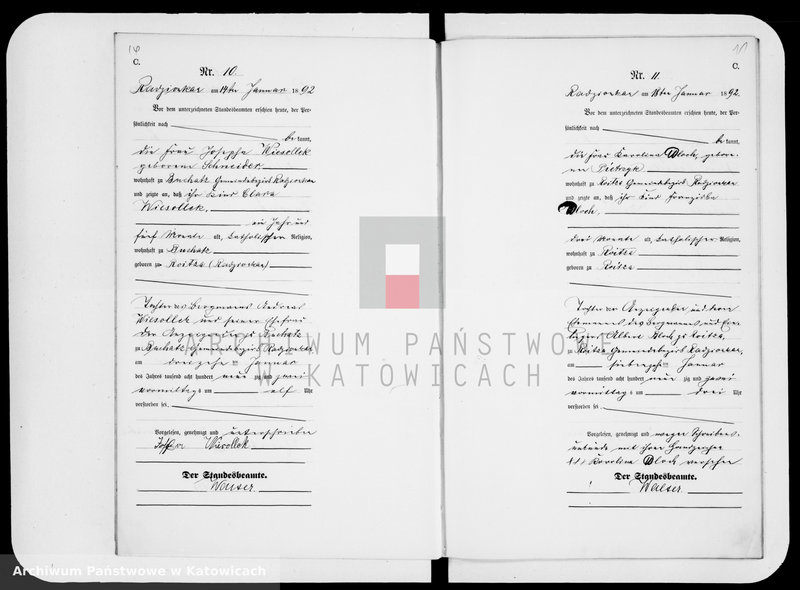 16
C.
Nr. 10
Radzionkau am 14ten Januar 1892
Vor dem unterzeichneten Standesbeamten erschien heute, der Per-
sönlichkeit nach
be kannt,
die Frau Josepha Wiesollek
geborene Schneider
wohnhaft zu Buchatz Gemeindebezirk Radzionkau
und zeigte an, daß ihr Kind Clara
Wiesollek,
ein Jahr und
fünf Monate alt, katholischer Religion,
wohnhaft zu Buchatz
geboren zu Roitza (Radzionkau)
Tochter des Bergmanns Andreas
Wiesollek und seiner Ehefrau
der Anzeigenden zu Buchatz
zu Buchatz Gemeindebezirk Radzionkau
am dreizehnten Januar
des Jahres tausend acht hundert neun zig und zwei
vormittags um elf Uhr
verstorben sei.
Vorgelesen, genehmigt und unterschrieben
Wiesollek
Der Standesbeamte.
Walser
C.
Nr. 11
Radzionkau am 18ten Januar 1892.
Vor dem unterzeichneten Standesbeamten erschien heute, der Per-
sönlichkeit nach
be kannt,
die Frau Karolina Bloch, gebore-
ne Pietrzyk
wohnhaft zu Roitza Gemeindebezirk Radzionkau
und zeigte an, daß ihr Kind Franziska
Bloch,
drei Monate alt, katholischer Religion,
wohnhaft zu Roitza
geboren zu Roitza
Tochter der Anzeigenden und deren
Ehemannes des Bergmanns und
Albert Bloch zu Roitza,
zu Roitza Gemeindebezirk Radzionkau,
am siebzehnten Januar
des Jahres tausend acht hundert neun zig und zwei
vormittags um drei Uhr
verstorben sei.
Vorgelesen, genehmigt und wegen Schreibens-
unkunde mit ihrem Handzeichen
+++ Karolina Bloch versehen
Der Standesbeamte.
Walser
ARCHIWUM PAŃSTWOWE
W KATOWICACH
Archiwum Państwowe w Katowicach